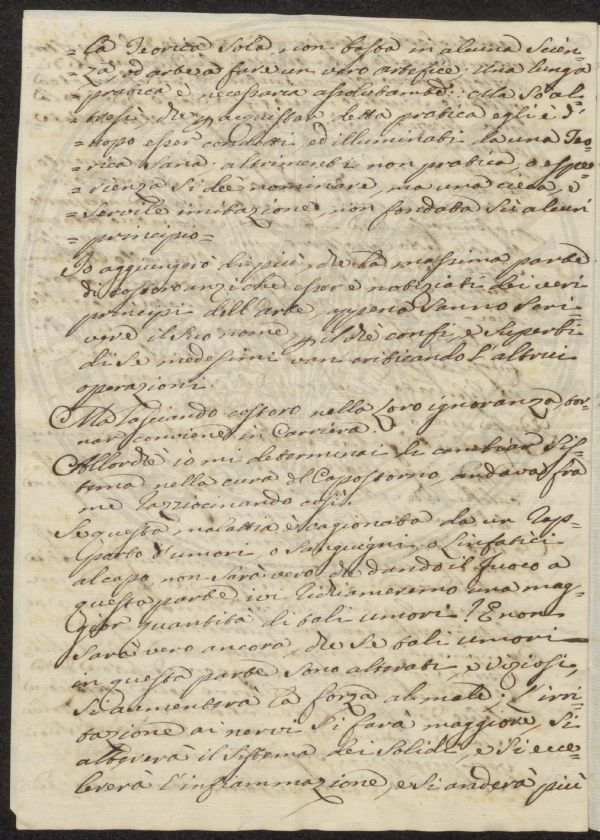 = La Teorica Sola non basta in alcuna Scien-
= za, od arte a fare un vero artefice. Una lunga
= pratica è necessaria assolutamte: Ma Si al-
= tresì, che p acquistar detta pratica egli è d'
= uopo esser condotti, ed illuminati da una Teo-
= rica Sana: altrimenti non pratica, o espe-
= rienza Si deè nominare, ma una cieca, e
= Servile imitazione, non fondata Sù alcun
= principio =
Io aggiungerò di più, che La massima parte
di costoro anzi che esser notiziati dei veri
principi dell'arte, appena Sanno Scri-
vere il Suo nome, p il che confi, e Superbi
di Se medesimi van criticando L'altrui
operazioni.
Ma lasciando costoro nella Loro ignoranza, tor-
nar conviene in Carriera.
Allorchè io mi determinai di cambiar Sis-
tema nella cura del Capostorno, andava frà
me raziocinando così.
Se questa malattia è cagionata da un Tras-
porto d'umori, o Sanguigni, o Linfatici
al capo, non Sarà vero che dando il fuoco a
questa parte ivi richiameremo una mag-
gior quantità di tali umori? E non
Sarà vero ancora, che Se tali umori
in questa parte Sono alterati, e viziosi,
Si aumenterà La forza al male: L'irri-
tazione ai nervi Si farà maggiore, Si
altererà il Sistema dei Solidi, e Si ecce-
lererà l'infiammazione, e Si anderà più